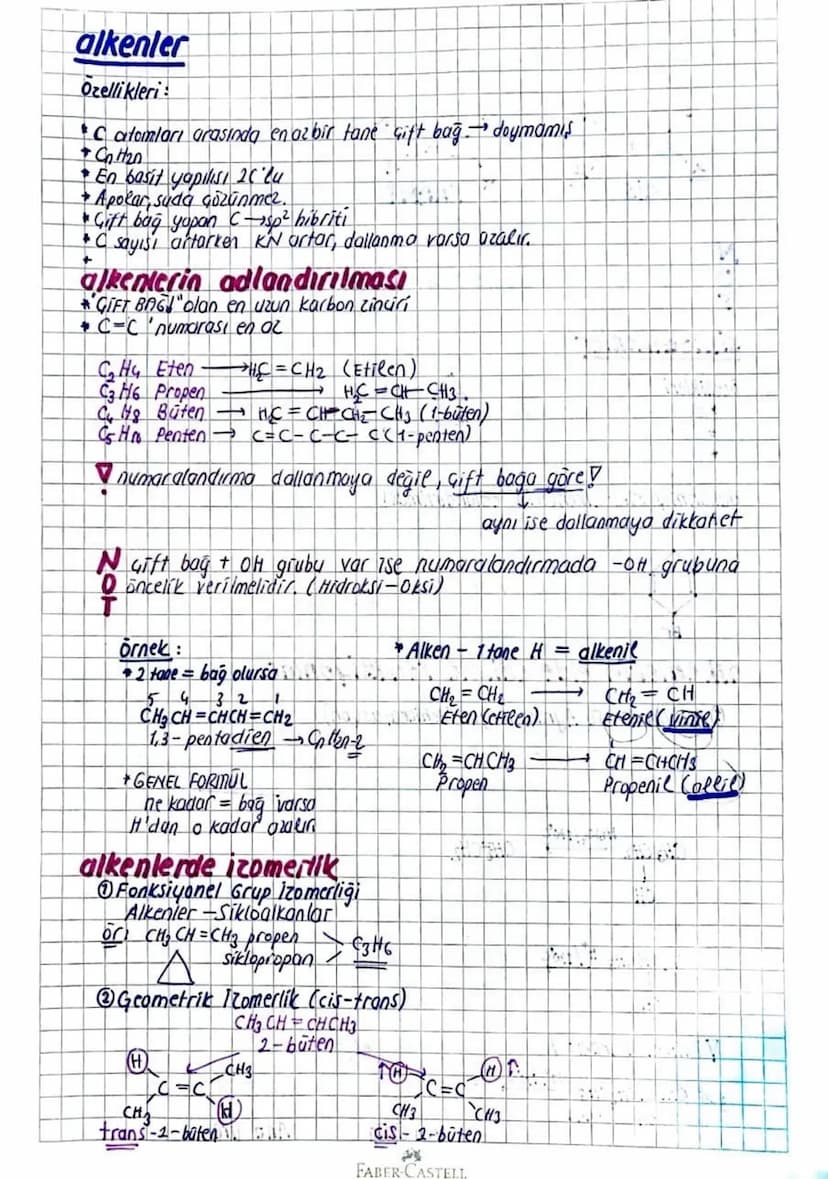 alkenler
Özellikleri:
* C atomları arasında en az bir tane çift bağ → doymamış
* CnH2n
* En basit yapılısı 2C'lu
* Apolar, suda çözünmez.
* Çift bağ yapan C → sp² hibriti
* C sayısı artarken KN artar, dallanma varsa azalır.
*
alkenlerin adlandırılması
* "ÇİFT BAĞI" olan en uzun karbon zinciri
* C=C 'numarası en az
C2H4 Eten → H2C = CH2 (Etilen)
C3H6 Propen → H2C = CH - CH3.
C4H8 Büten → H2C = CH - CH2 - CH3 (1-büten)
C5H10 Penten → C=C-C-C-C (1-penten)
! numaralandırma dallanmaya değil, çift bağa göre!
↓
aynı ise dallanmaya dikkat et
NOT
çift bağ + OH grubu var ise numaralandırmada -OH grubuna
öncelik verilmelidir. (Hidroksi-Oksi)
Örnek:
* 2 tane = bağ olursa
5 4 3 2 1
CH3CH=CHCH=CH2
1,3-pentadien → CnH2n-2
* GENEL FORMÜL
ne kadar = bağ varsa
H'dan o kadar azalır
* Alken - 1 tane H = alkenil
CH2 = CH2 → CH2 = CH
Eten (etilen) Etenil (vinil)
CH2 = CHCH3 → CH = CHCH3
Propen Propenil (allil)
alkenlerde izomerlik
① Fonksiyonel Grup İzomerliği
Alkenler - Sikloalkanlar
ör: CH3CH=CH3 propen
siklopropan
C3H6
② Geometrik İzomerlik (cis-trans)
CH3CH=CHCH3
2-büten
H CH3
C=C
CH3 H
trans-2-büten
↑H H↑
C=C
CH3 CH3
cis-2-büten
FABER-CASTELL